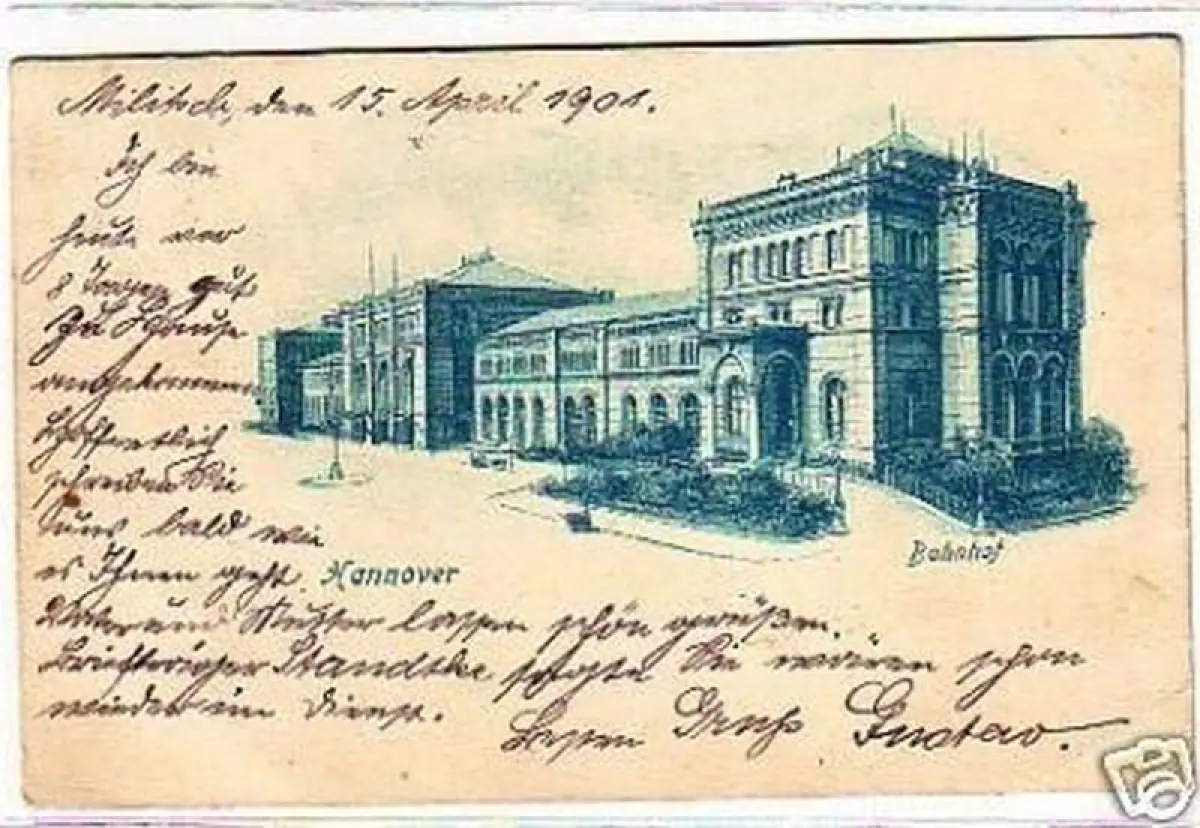 Militsch, den 15. April 1901.
Ich bin
heute vor
8 Tagen gut
zu Hause
angekommen
Hoffentlich
schreiben Sie
uns bald wie
es Ihnen geht.
Hannover
Bahnhof
Vater und Mutter lassen schön grüßen.
Briefträger Standtke sagte Sie wären schon
wieder im Dienst.
Besten Gruß Gustav.